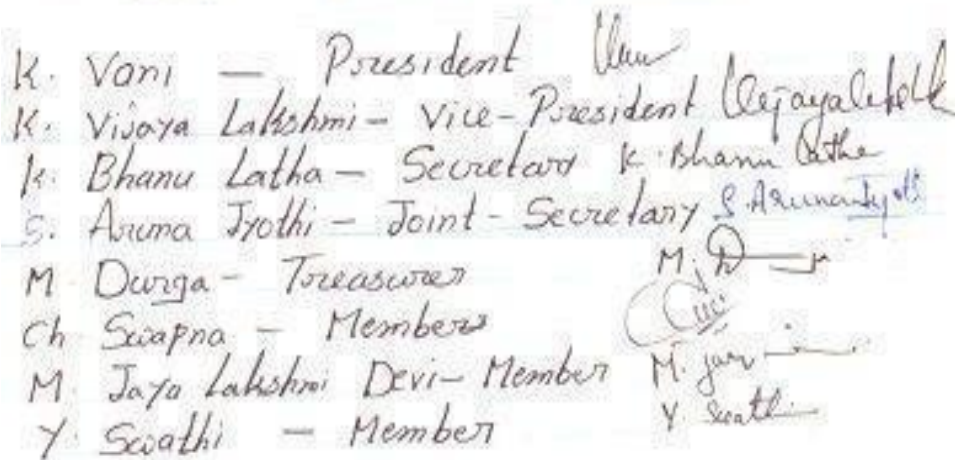 K. Vani — President
K. Vijaya Lakshmi - Vice - President
K. Bhanu Latha - Secretary K. Bhanu Latha
S. Aruna Jyothi - Joint - Secretary S. Aruna Jyothi
M. Durga - Treasurer M.
Ch Swapna - Members
M. Jaya Lakshmi Devi - Member M.
Y. Swathi - Member Y. Swathi